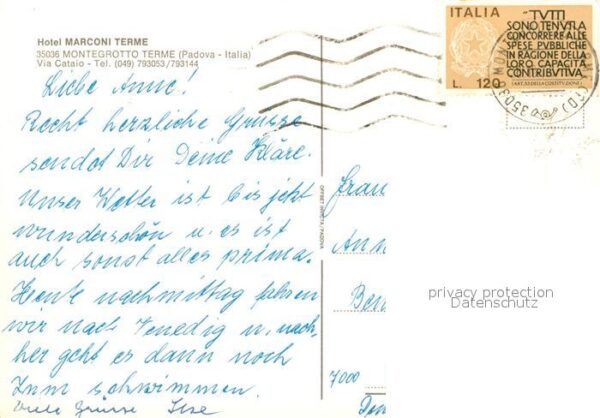 Hotel MARCONI TERME
35036 MONTEGROTTO TERME (Padova - Italia)
Via Cataio - Tel. (049) 793053/793144
ITALIA
TUTTI
SONO TENUTI A
CONCORRERE ALLE
SPESE PUBBLICHE
IN RAGIONE DELLA
LORO CAPACITÀ
CONTRIBUTIVA
(ART. 53 DELLA COSTITUZIONE)
L. 120
35036
Liebe Anne!
Recht herzliche Grüsse
sendet Dir Deine Kläre.
Unser Wetter ist bis jetzt
wunderschön u. es ist
auch sonst alles prima.
Heute nachmittag fahren
wir nach Venedig u. nach
her geht es dann noch
zum schwimmen.
Viele Grüsse Ilse
Frau
Ann
7000
privacy protection
Datenschutz